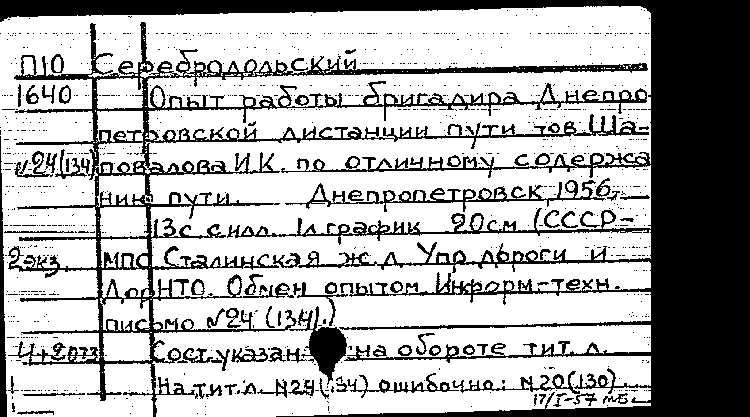 П10 Серебродольский
1640 Опыт работы бригадира Днепро-
петровской дистанции пути тов Ша-
№24(134) повалова И.К. по отличному содержа
нию пути. Днепропетровск, 1956,
13с с илл. 1л график 20см (СССР-
2экз. МПС Сталинская ж.д. Упр дороги и
ДорНТО. Обмен опытом. Информ-техн.
письмо №24 (134).)
Сост. указан на обороте тит. л.
На тит л. №24(134) ошибочно: №20(130).
17/I-57